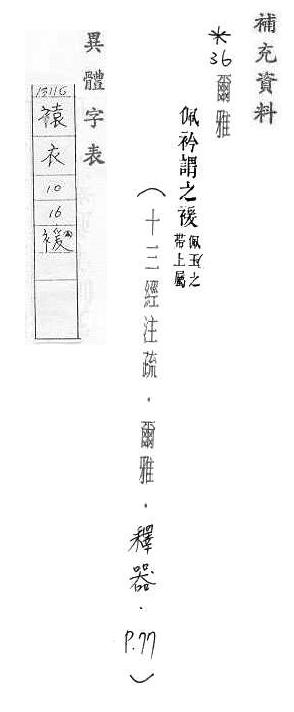 補充資料
*36 爾雅
佩衿謂之褑佩玉之帶上屬
(十三經注疏．爾雅．釋器．P.77)
異體字表
13116
褤
衣
10
16
褑